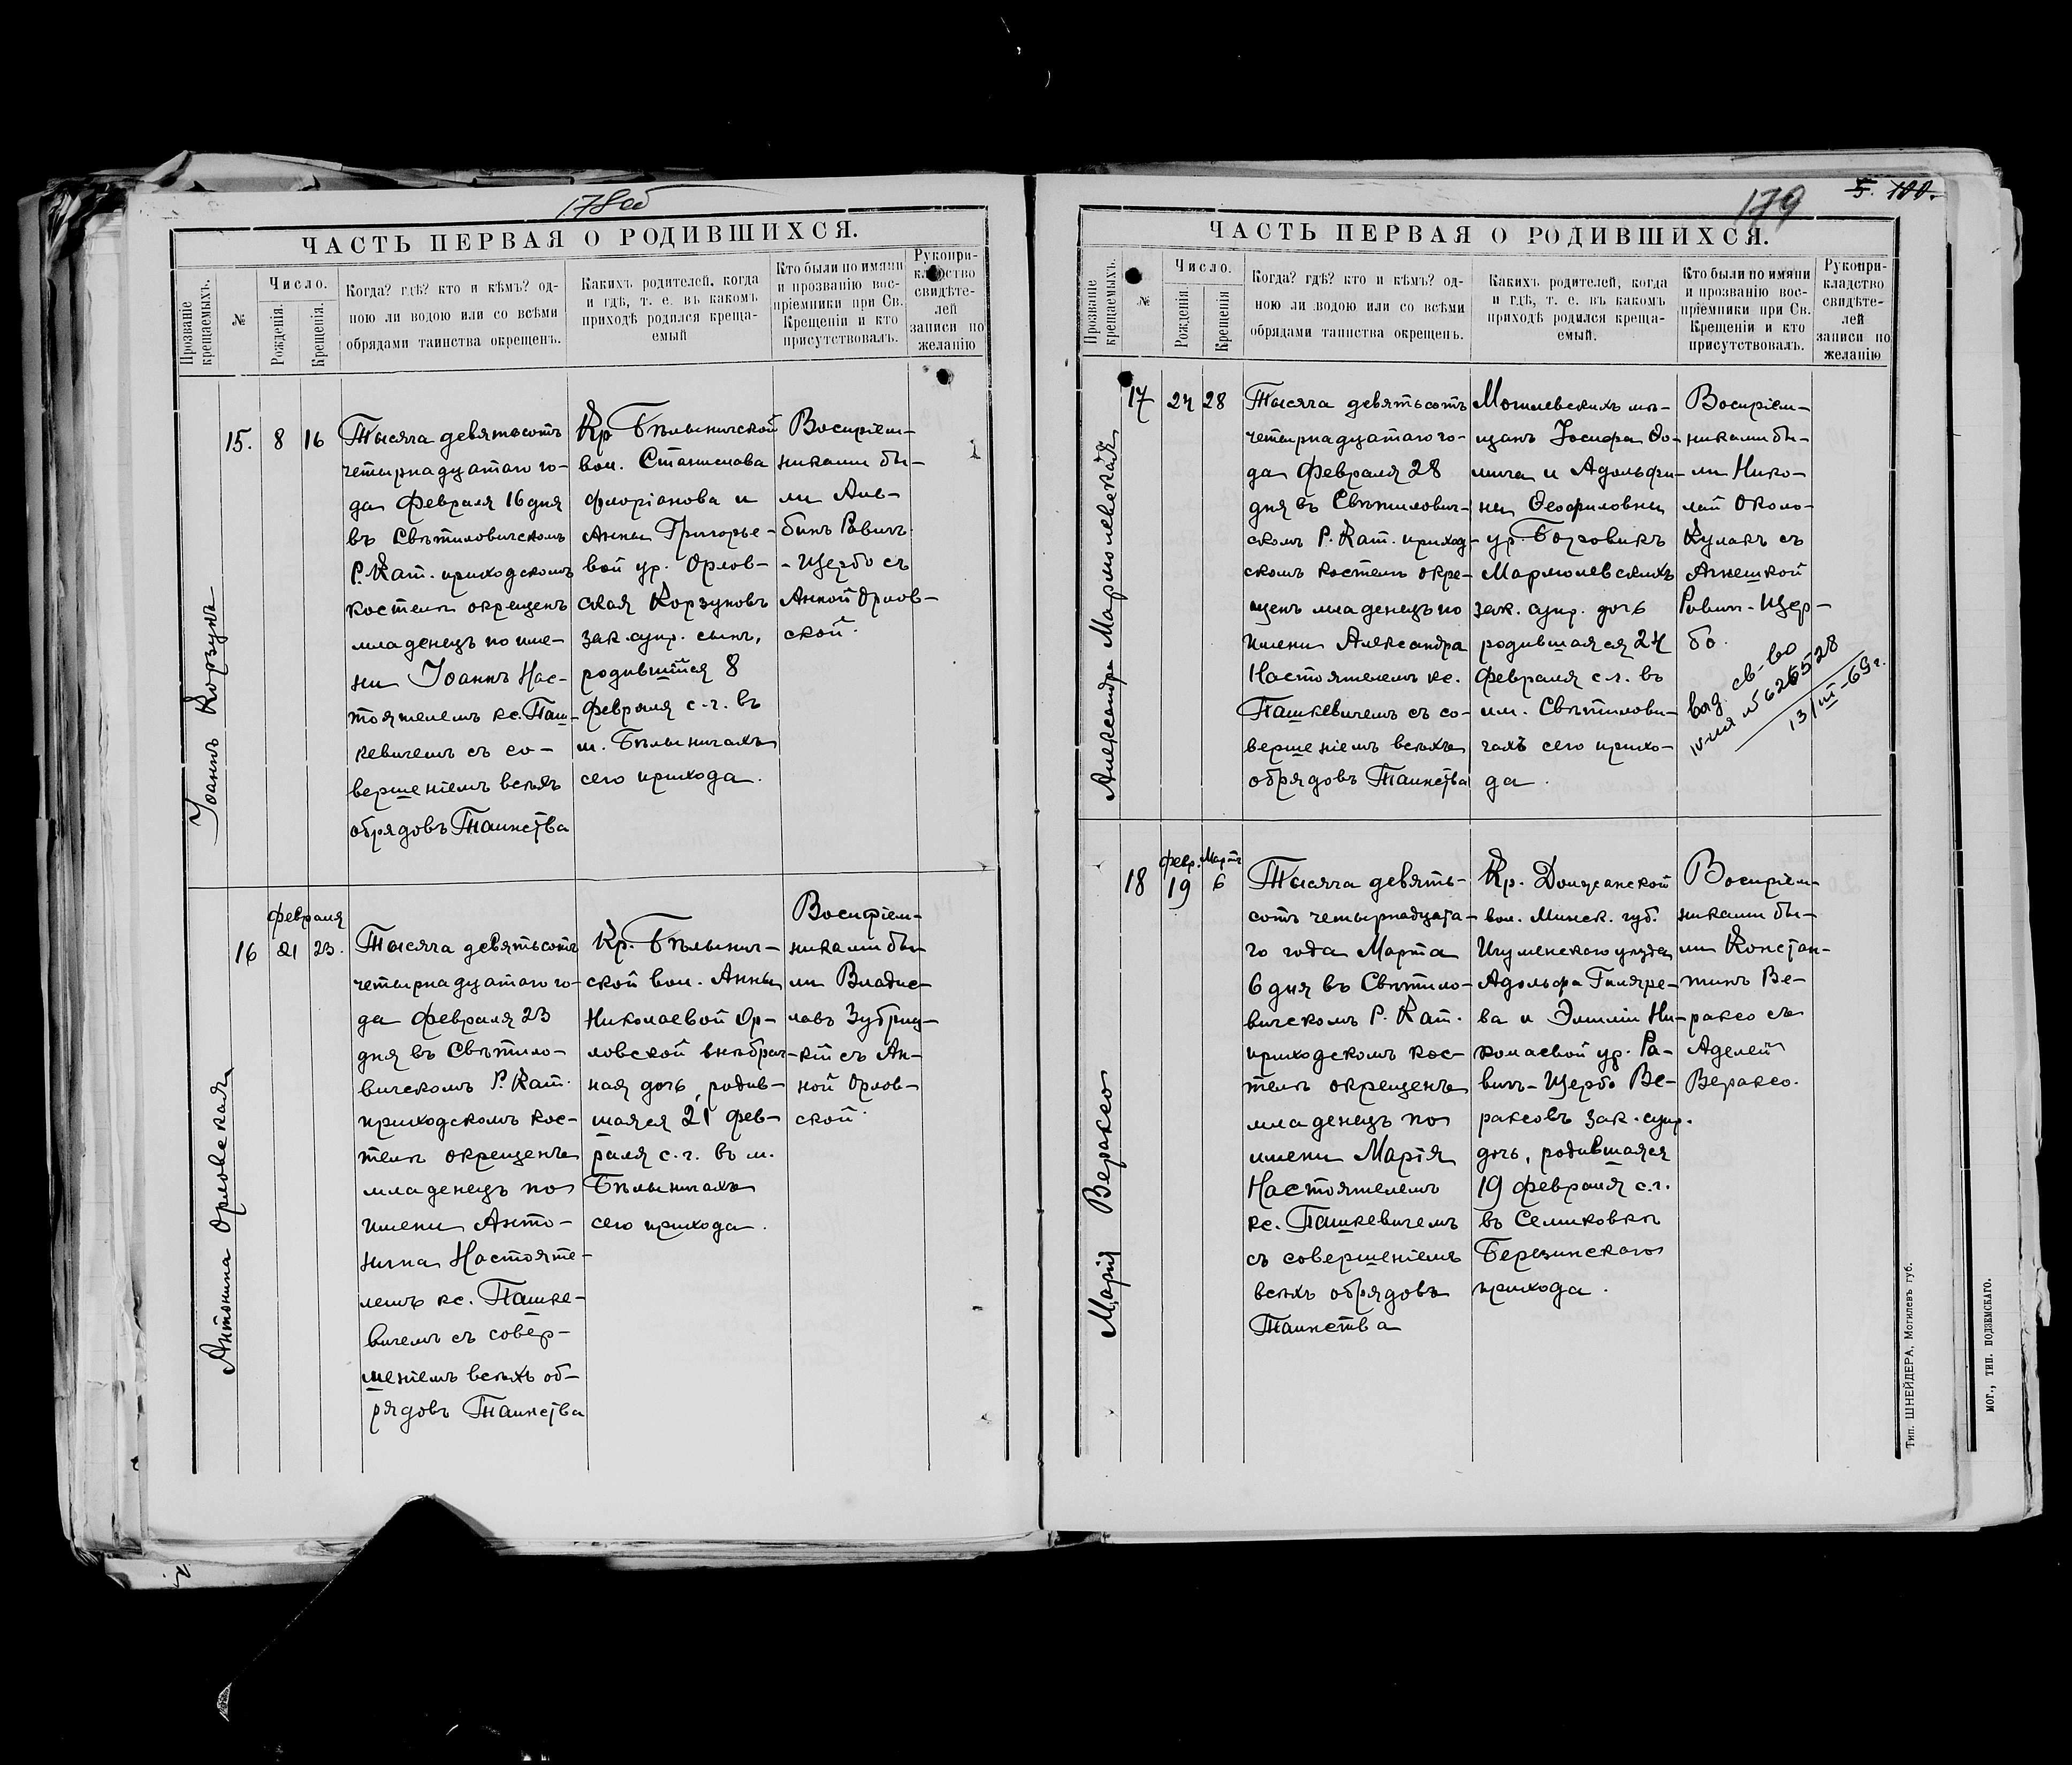 178об
ЧАСТЬ ПЕРВАЯ О РОДИВШИХСЯ.
Прозваніе крещаемыхъ.
№
Число.
Рожденія.
Крещенія.
Когда? гдѣ? кто и кѣмъ? од-
ною ли водою или со всѣми
обрядами таинства окрещенъ.
Какихъ родителей, когда
и гдѣ, т. е. въ какомъ
приходѣ родился креща-
емый
Кто были по имяни
и прозванію вос-
пріемники при Св.
Крещеніи и кто
присутствовалъ.
Рукопри-
кладство
свидѣте-
лей
записи по
желанію
Іоаннъ Корзунъ
15.
8
16
Тысяча девятьсотъ
четырнадцатаго го-
да февраля 16 дня
въ Свѣтиловичскомъ
Р. Кат. приходскомъ
костелѣ окрещенъ
младенецъ по име-
ни Іоаннъ Нас-
тоятелемъ кс. Паш-
кевичемъ съ со-
вершеніемъ всѣхъ
обрядовъ Таинства
Кр Бѣлыничской
вол. Станислава
Флоріанова и
Анны Григорье-
вой ур. Орлов-
ская Корзуновъ
зак. супр. сынъ,
родившійся 8
февраля с. г. въ
м. Бѣлыничахъ
сего прихода.
Воспріем-
никами бы-
ли Аль-
бинъ Равичъ
-Щербо съ
Анной Орлов-
ской.
Антонина Орловская
16
февраля
21
23.
Тысяча девятьсотъ
четырнадцатаго го-
да февраля 23
дня въ Свѣтило-
вичскомъ Р. Кат.
приходскомъ кос-
телѣ окрещенъ
младенецъ по
имени Анто-
нина Настояте-
лемъ кс. Пашке-
вичемъ съ совер-
шеніемъ всѣхъ об-
рядовъ Таинства
Кр. Бѣлынич-
ской вол. Анны
Николаевой Ор-
ловской внѣбрач-
ная дочь, родив-
шаяся 21 фев-
раля с. г. въ м.
Бѣлыничахъ
сего прихода.
Воспріем-
никами бы-
ли Владис-
лавъ Зубриц-
кій съ Ан-
ной Орлов-
ской.
179
5. 100.
ЧАСТЬ ПЕРВАЯ О РОДИВШИХСЯ.
Прозваніе крещаемыхъ.
№
Число.
Рожденія
Крещенія
Когда? гдѣ? кто и кѣмъ? од-
ною ли водою или со всѣми
обрядами таинства окрещенъ.
Какихъ родителей, когда
и гдѣ, т. е. въ какомъ
приходѣ родился креща-
емый.
Кто были по имяни
и прозванію вос-
пріемники при Св.
Крещеніи и кто
присутствовалъ.
Рукопри-
кладство
свидѣте-
лей
записи по
желанію
Александра Мармолевская
17
24
28
Тысяча девятьсотъ
четырнадцатаго го-
да февраля 28
дня въ Свѣтилович-
скомъ Р. Кат. приход-
скомъ костелѣ окре-
щенъ младенецъ по
имени Александра
Настоятелемъ кс.
Пашкевичемъ съ со-
вершеніемъ всѣхъ
обрядовъ Таинства
Могилевскихъ мѣ-
щанъ Іосифа Ѳо-
мича и Адольфи-
ны Ѳеофиловны
ур.
Мармолевскихъ
зак. супр. дочь
родившаяся 24
февраля с. г. въ
им. Свѣтилови-
чахъ сего прихо-
да.
Воспріем-
никами бы-
ли Нико-
лай Около-
Кулакъ съ
Агнешкой
Равич-Щер-
бо.
выд. св-во
№ 626528
13/III-69 г.
Марія Вераксо
18
февр.
19
Мартъ
6
Тысяча девять-
сотъ четырнадцата-
го года Марта
6 дня въ Свѣтило-
вичскомъ Р. Кат.
приходскомъ кос-
телѣ окрещенъ
младенецъ по
имени Марія
Настоятелемъ
кс. Пашкевичемъ
съ совершеніемъ
всѣхъ обрядовъ
Таинства
Кр. Должанской
вол. Минск. губ.
Игуменскаго уѣзда
Адольфа Гиляре-
ва и Эмиліи Ни-
колаевой ур. Ра-
вич-Щербо Ве-
раксовъ зак. супр.
дочь, родившаяся
19 февраля с. г.
въ Селиковкѣ
Березинскаго
прихода.
Воспріем-
никами бы-
ли Констан-
тинъ Ве-
раксо съ
Аделей
Вераксо.
Тип. ШНЕЙДЕРА, Могилевъ губ.
МОГ., ТИП. ПОДЗЕМСКАГО.